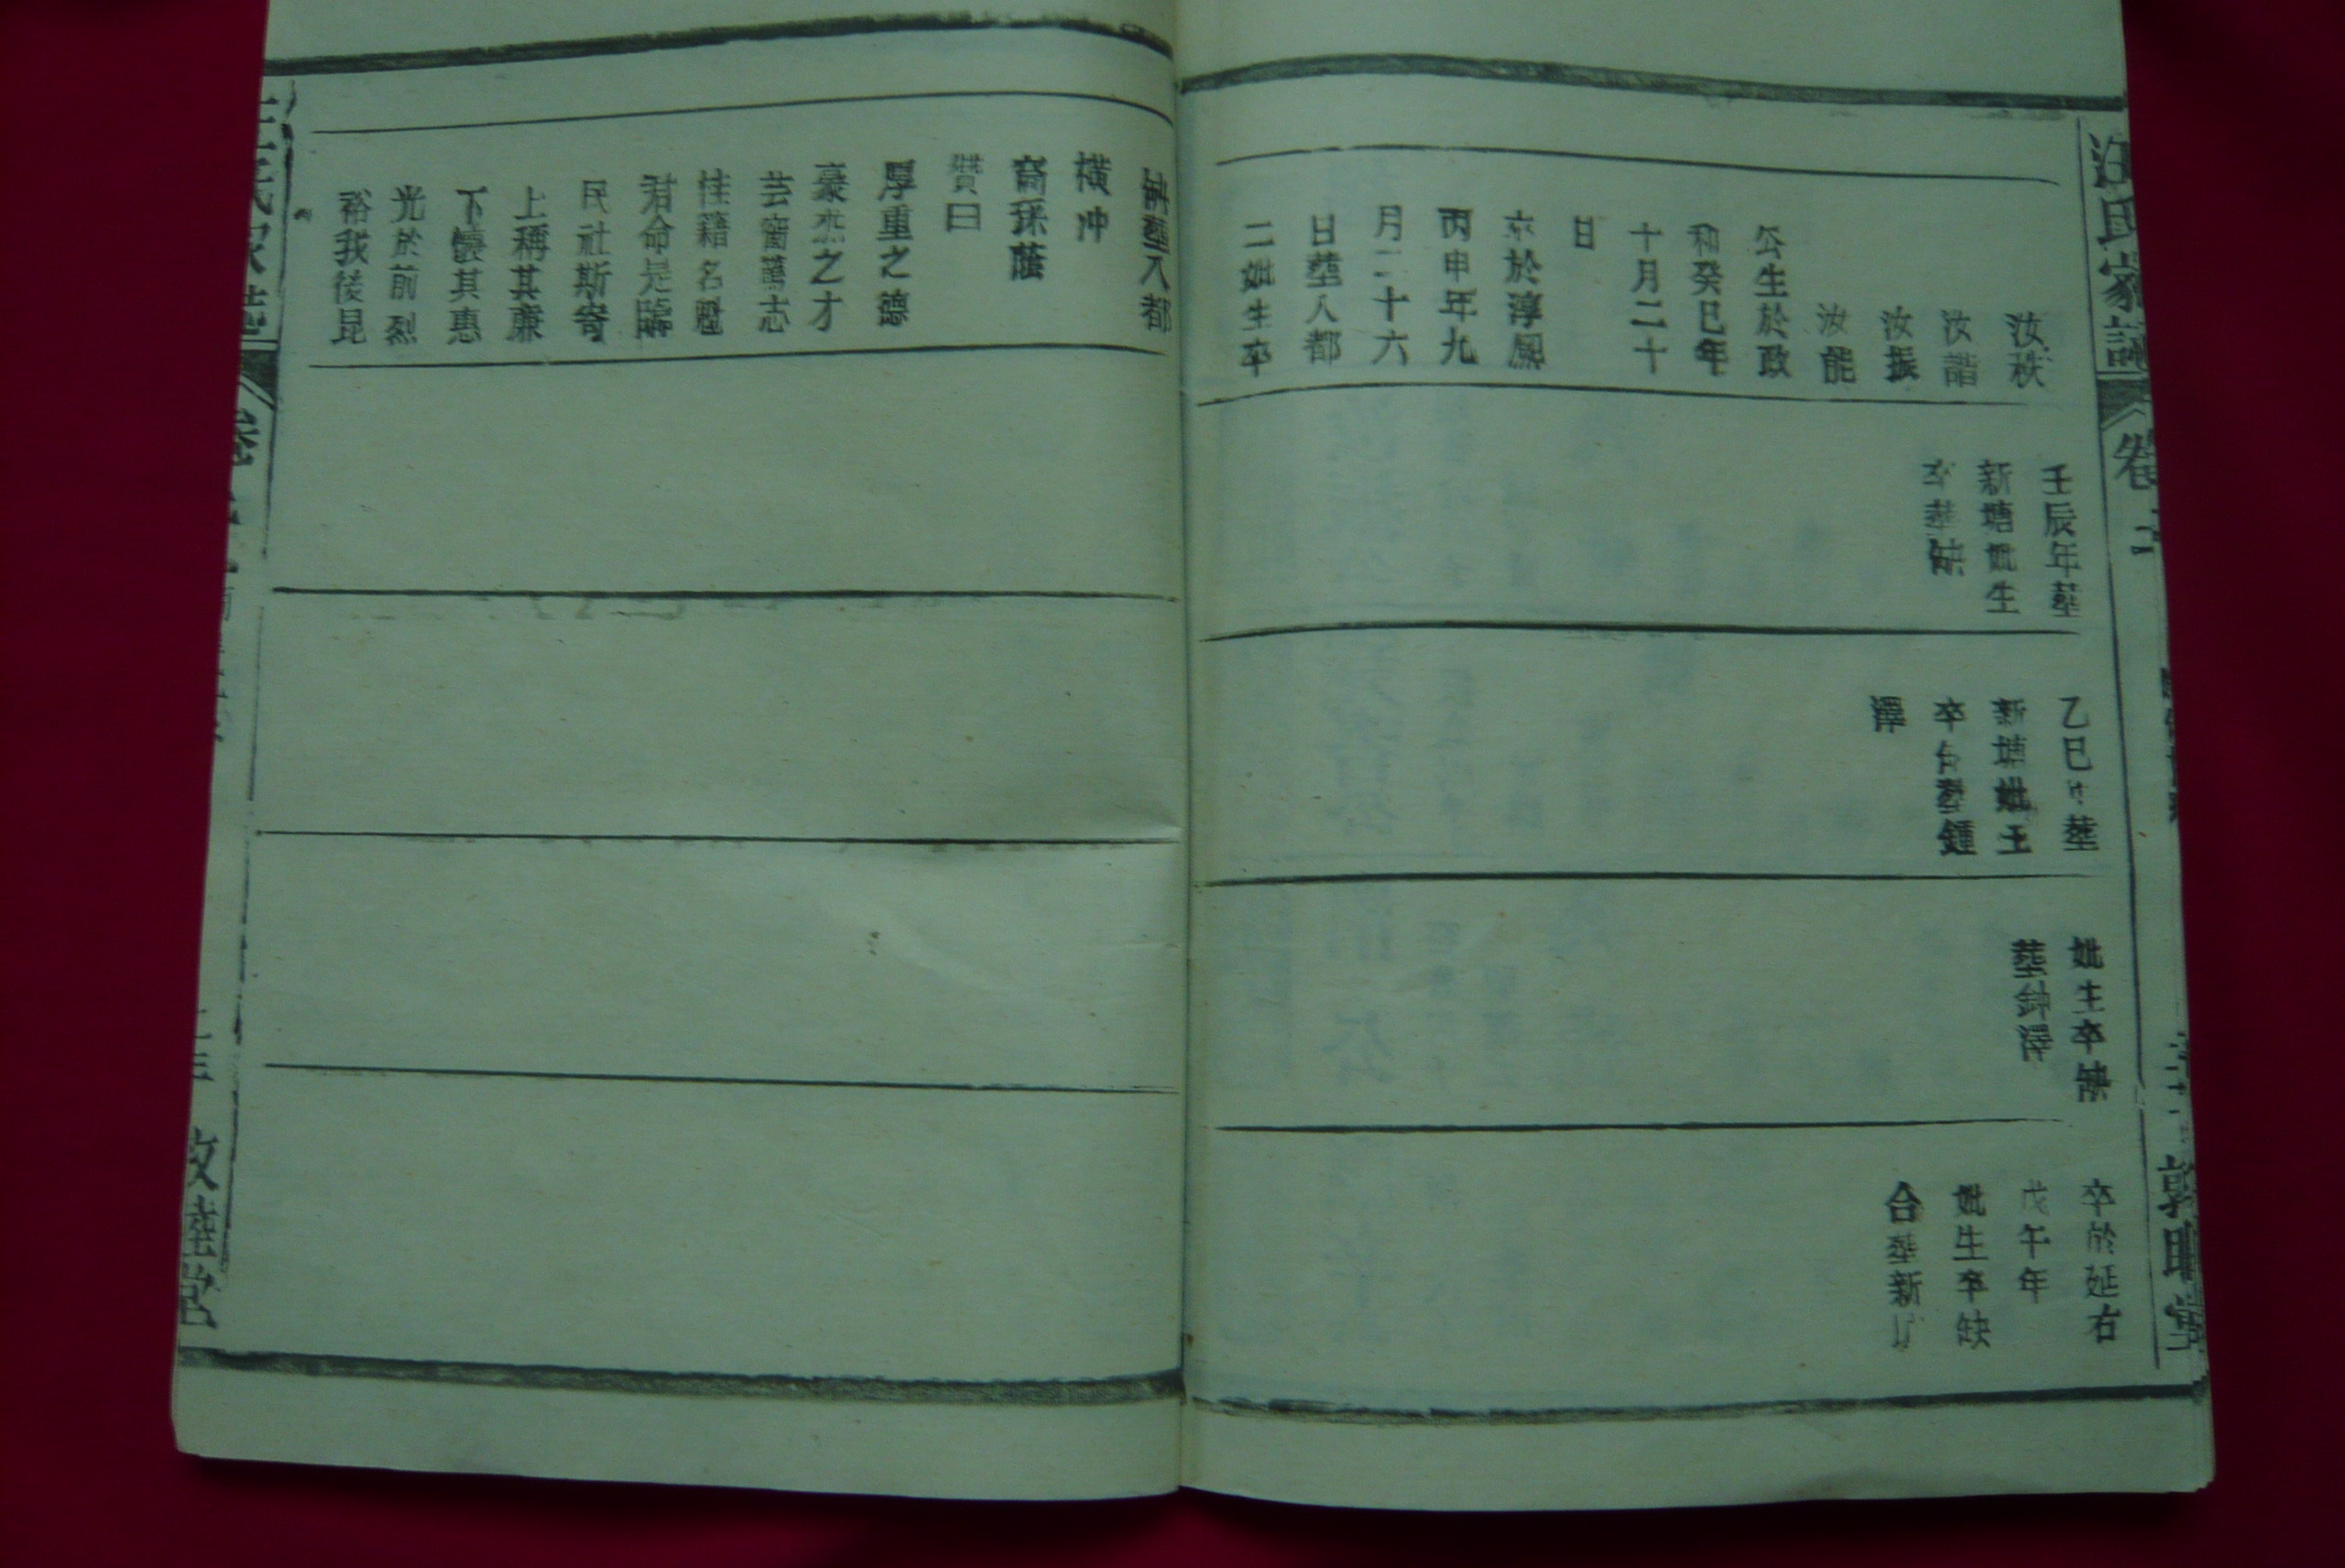 汪氏家譜
卷
敦睦堂
汝秩
汝諧
汝振
汝能
公生於政
和癸巳年
十月二十
日
卒於淳熈
丙申年九
月二十六
日塟入都
二妣生卒
壬辰年塟
新塘妣生
卒塟缺
乙巳年塟
新塘妣王
卒缺塟鍾
澤
妣生卒缺
塟鈡澤
卒於延右
戊午年
妣生卒缺
合塟新
缺塟入都
橫冲
裔孫蔭
贊曰
厚重之德
豪杰之才
芸窗篤志
桂籍名魁
君命是臨
民社斯寄
上稱其廉
下懷其惠
光於前烈
裕我後昆
汪氏家譜
卷
敦睦堂